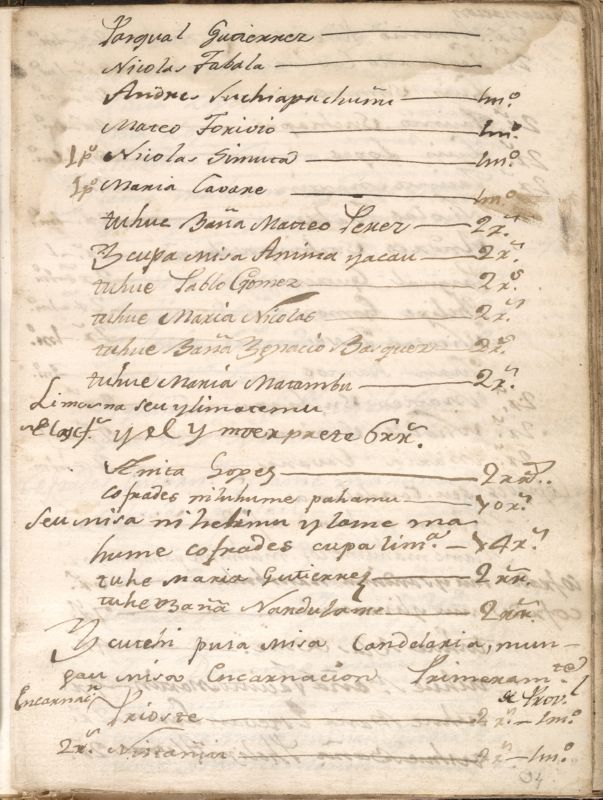 Pasqual Gutierrez
Nicolas Tabala
Andres Suchiapachumi — lm.o
Mateo Torivio — lm.o
1po Nicolas Simuta — lm.o
1po Maria Cavare — lm.o
tuhue Baña Matteo Perez — 2 rs.
Y cupa misa Anima yacau — 2 rs.
tuhue Pablo Gomez — 2 rs.
tuhue Maria Nicolas — 2 rs.
tuhue Baña Ygnacio Basquez — 2 rs.
tuhue Maria Matambu — 2 rs.
Limosna seu ylimotemu
y el Ynterprete 6 rs.
Anita Gopez — 2 rs.
cofrades niluhume pahamu — 10 rs.
seu misa ni hehimu ylome ma
hume cofrades cupa lima — 14 rs.
tuhe Maria Gutierrez — 2 rs.
tuhe Baña Nandulame — 2 rs.
Y cutehi puta misa Candelaria, mun-
gau misa Encarnacion Primeramte
Encarnacin Prioste — 2 rs. — lm.o
2 rs. — 2 rs. — lm.o